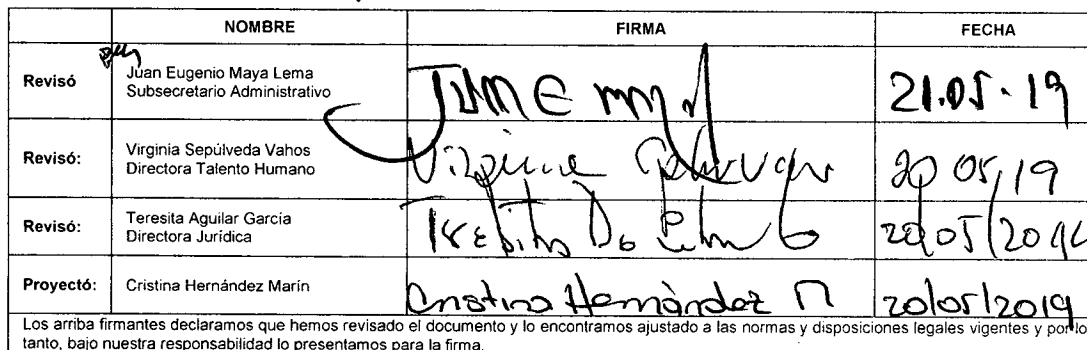 NOMBRE FIRMA FECHA
Revisó Juan Eugenio Maya Lema
Subsecretario Administrativo
21.05.19
Revisó: Virginia Sepúlveda Vahos
Directora Talento Humano
Virginia 20 05/19
Revisó: Teresita Aguilar García
Directora Jurídica
20/05/2019
Proyectó: Cristina Hernández Marín Cristina Hernández M 20/05/2019
Los arriba firmantes declaramos que hemos revisado el documento y lo encontramos ajustado a las normas y disposiciones legales vigentes y por lo
tanto, bajo nuestra responsabilidad lo presentamos para la firma.